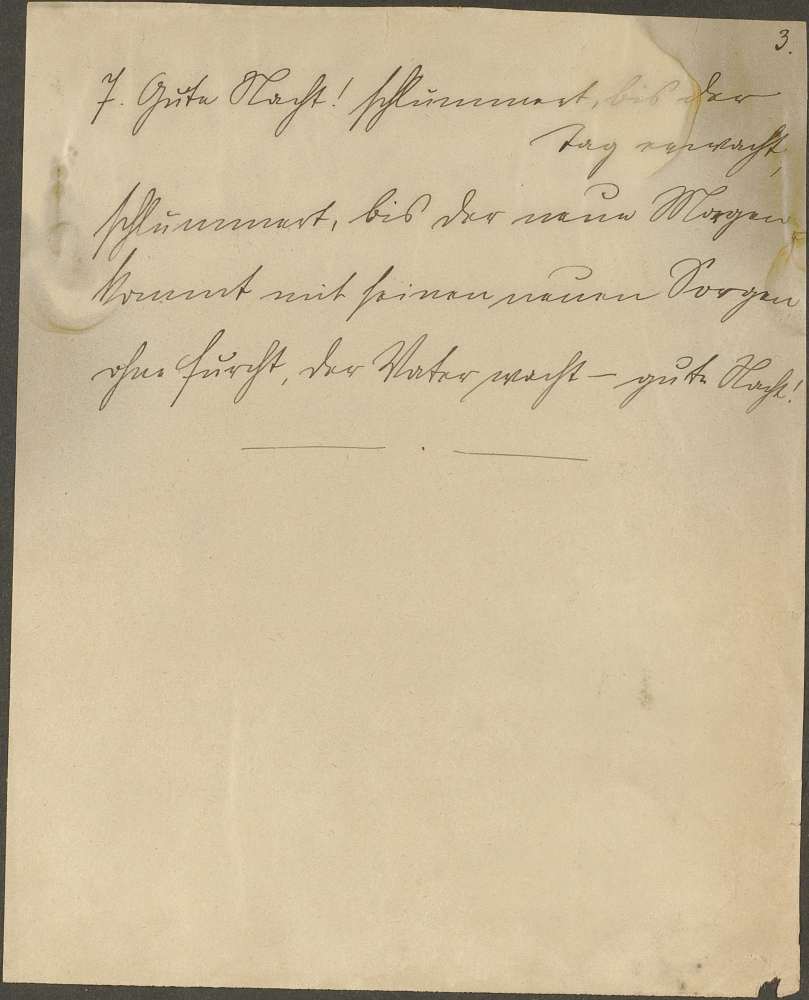 3.
7. Gute Nacht! schlummert, bis der
Tag erwacht,
schlummert, bis der neue Morgen
kommt mit seinen neuen Sorgen
ohne Furcht, der Vater wacht – gute Nacht!